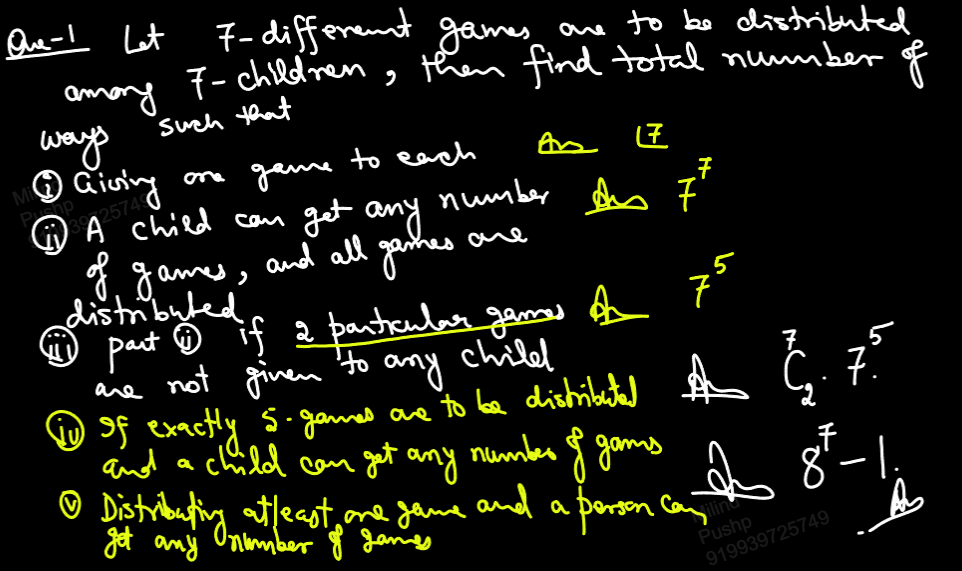 Que-1 Let 7-different games are to be distributed
among 7-children, then find total number of
ways such that
(i) Giving one game to each Ans ⌊7
(ii) A child can get any number Ans 7⁷
of games, and all games are
distributed
(iii) part (ii) if 2 particular games Ans 7⁵
are not given to any child
(iv) If exactly 5-games are to be distributed Ans ⁷C₂. 7⁵.
and a child can get any number of games
(v) Distributing atleast one game and a person can Ans 8⁷-1.
get any number of games Ans
Milind
Pushp
919939725749